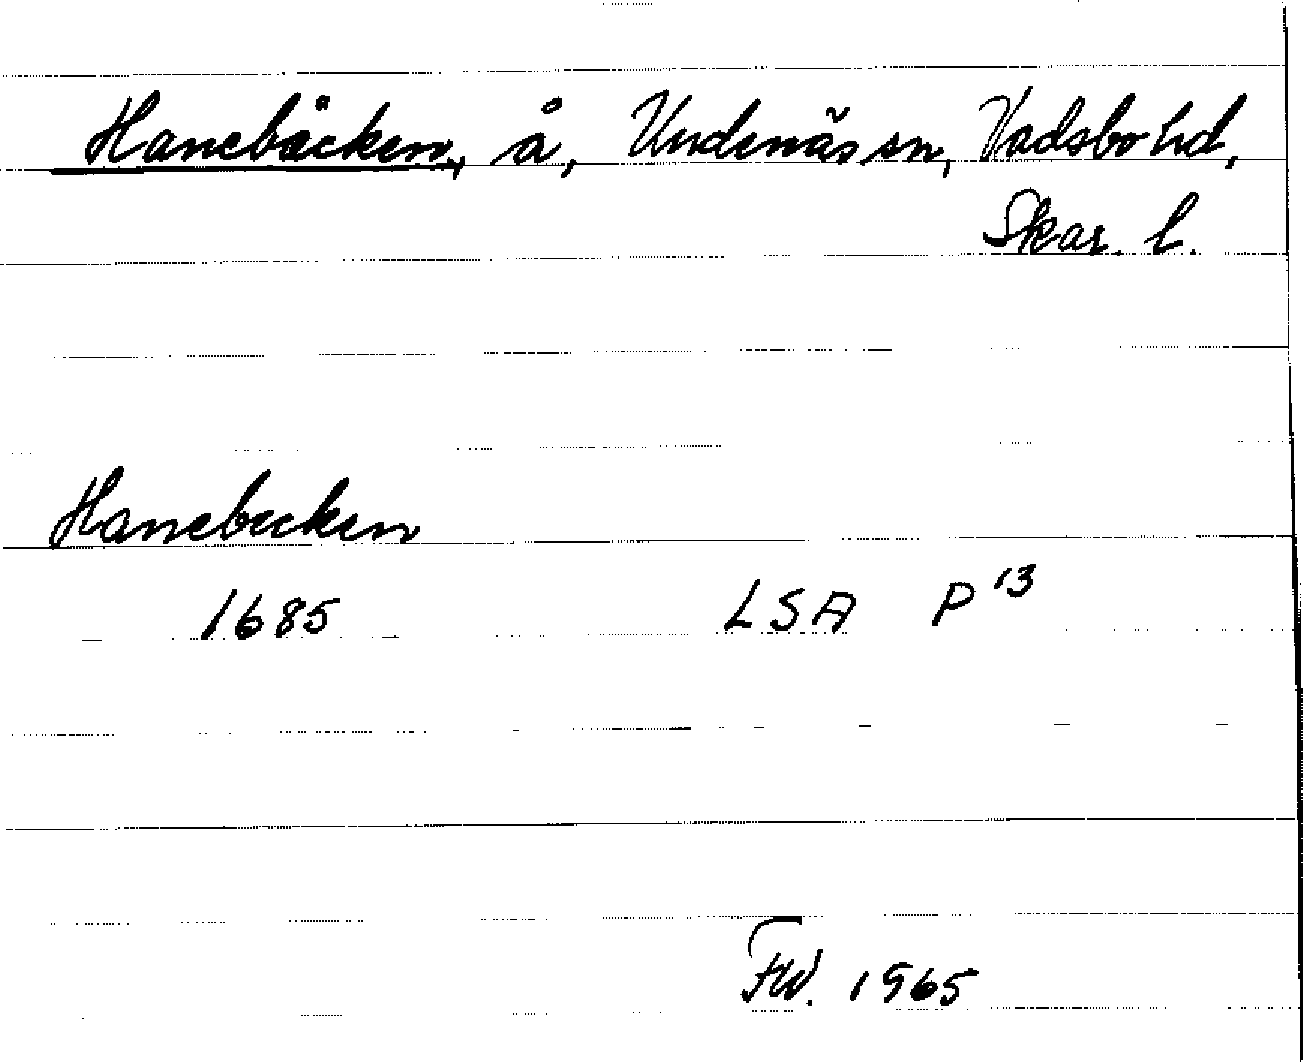 Hanebäcken, å, Undenäs sn, Vadsbo hd,
Skar. l.
Hanebecken
1685 LSA P 13
FW. 1965